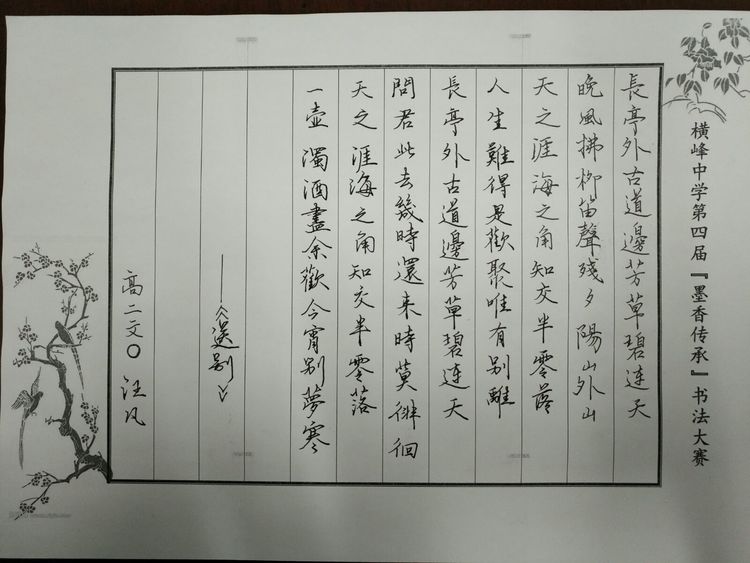 横峰中学第四届『墨香传承』书法大赛
長亭外古道邊芳草碧連天
晚風拂柳笛聲殘夕陽山外山
天之涯海之角知交半零落
人生難得是歡聚唯有别離
長亭外古道邊芳草碧連天
問君此去幾時還来時莫徘徊
天之涯海之角知交半零落
一壺濁酒盡余歡今宵别夢寒
——《送别》
高二文〇 汪凡